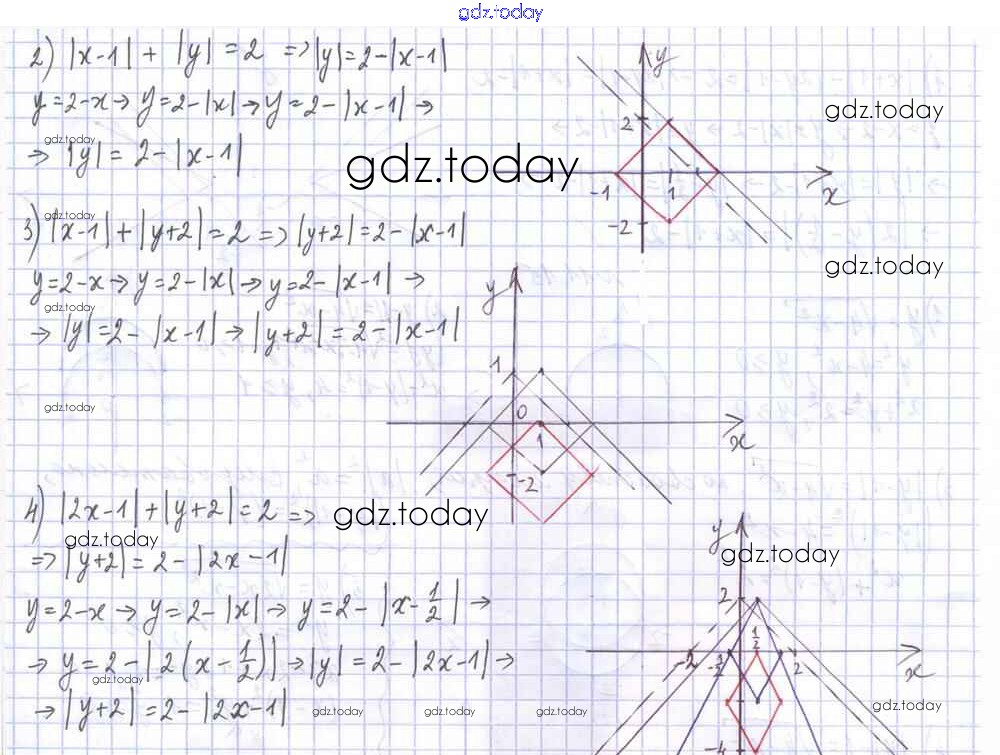 gdz.today
2) |x-1| + |y| = 2 => |y| = 2-|x-1|
y=2-x → y=2-|x| → y=2-|x-1| →
gdz.today
gdz.today
→ |y| = 2-|x-1|
gdz.today
y
2
-1
1
x
-2
gdz.today
3) |x-1| + |y+2| = 2 => |y+2| = 2-|x-1|
gdz.today
y=2-x → y=2-|x| → y=2-|x-1| →
gdz.today
→ |y| = 2-|x-1| → |y+2| = 2-|x-1|
y
1
0
1
x
-2
gdz.today
4) |2x-1| + |y+2| = 2 =>
gdz.today
gdz.today
=> |y+2| = 2-|2x-1|
y=2-x → y=2-|x| → y=2-|x-1/2| →
→ y=2-|2(x-1/2)| → |y| = 2-|2x-1| →
gdz.today
→ |y+2| = 2-|2x-1|
gdz.today
gdz.today
gdz.today
gdz.today
y
gdz.today
2
1/2
-2
-1/2
2
x
-4